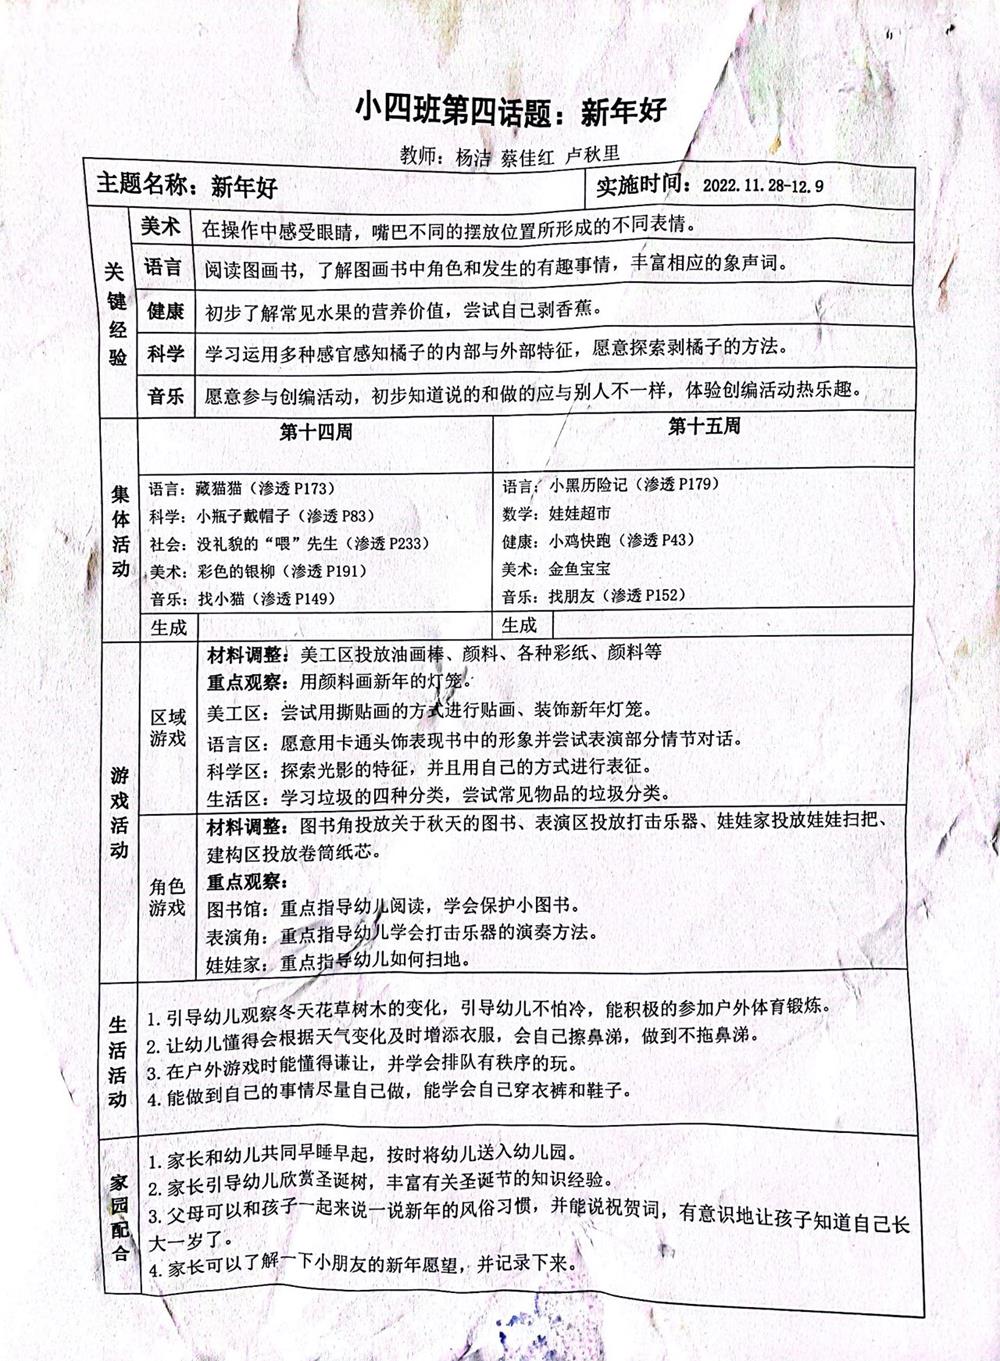 小四班第四话题：新年好
教师：杨洁 蔡佳红 卢秋里
主题名称：新年好
实施时间：2022.11.28-12.9
关键经验
美术 在操作中感受眼睛，嘴巴不同的摆放位置所形成的不同表情。
语言 阅读图画书，了解图画书中角色和发生的有趣事情，丰富相应的象声词。
健康 初步了解常见水果的营养价值，尝试自己剥香蕉。
科学 学习运用多种感官感知橘子的内部与外部特征，愿意探索剥橘子的方法。
音乐 愿意参与创编活动，初步知道说的和做的应与别人不一样，体验创编活动热乐趣。
集体活动
第十四周
语言：藏猫猫（渗透 P173）
科学：小瓶子戴帽子（渗透 P83）
社会：没礼貌的“喂”先生（渗透 P233）
美术：彩色的银柳（渗透 P191）
音乐：找小猫（渗透 P149）
生成
第十五周
语言：小黑历险记（渗透 P179）
数学：娃娃超市
健康：小鸡快跑（渗透 P43）
美术：金鱼宝宝
音乐：找朋友（渗透 P152）
生成
游戏活动
区域游戏
材料调整：美工区投放油画棒、颜料、各种彩纸、颜料等
重点观察：用颜料画新年的灯笼。
美工区：尝试用撕贴画的方式进行贴画、装饰新年灯笼。
语言区：愿意用卡通头饰表现书中的形象并尝试表演部分情节对话。
科学区：探索光影的特征，并且用自己的方式进行表征。
生活区：学习垃圾的四种分类，尝试常见物品的垃圾分类。
角色游戏
材料调整：图书角投放关于秋天的图书、表演区投放打击乐器、娃娃家投放娃娃扫把、
建构区投放卷筒纸芯。
重点观察：
图书馆：重点指导幼儿阅读，学会保护小图书。
表演角：重点指导幼儿学会打击乐器的演奏方法。
娃娃家：重点指导幼儿如何扫地。
生活活动
1. 引导幼儿观察冬天花草树木的变化，引导幼儿不怕冷，能积极的参加户外体育锻炼。
2. 让幼儿懂得会根据天气变化及时增添衣服，会自己擦鼻涕，做到不拖鼻涕。
3. 在户外游戏时能懂得谦让，并学会排队有秩序的玩。
4. 能做到自己的事情尽量自己做，能学会自己穿衣裤和鞋子。
家园配合
1. 家长和幼儿共同早睡早起，按时将幼儿送入幼儿园。
2. 家长引导幼儿欣赏圣诞树，丰富有关圣诞节的知识经验。
3. 父母可以和孩子一起来说一说新年的风俗习惯，并能说祝贺词，有意识地让孩子知道自己长
大一岁了。
4. 家长可以了解一下小朋友的新年愿望，并记录下来。